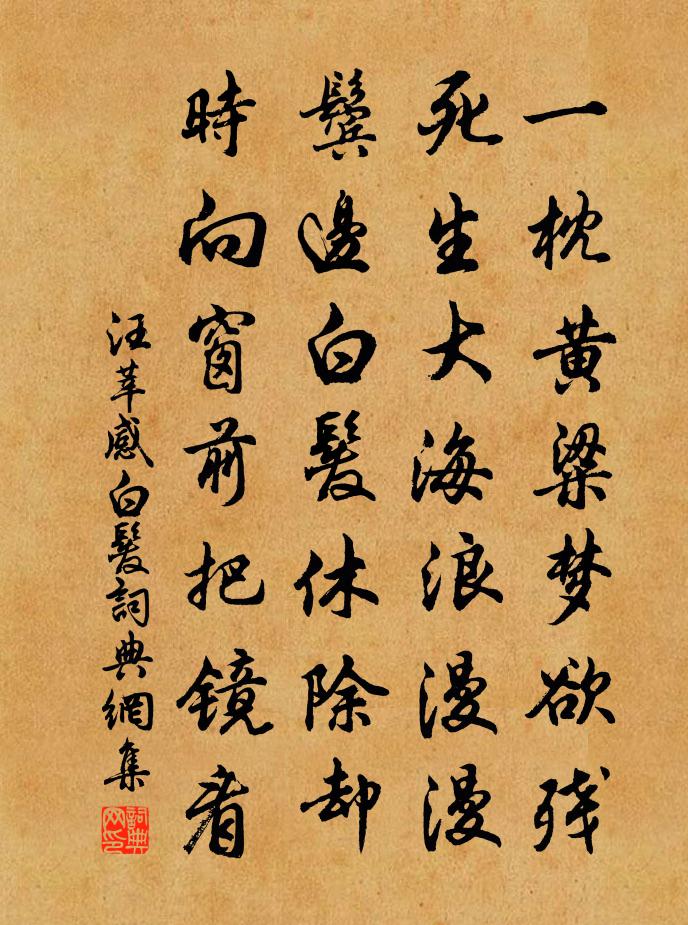 一枕黄粱梦欲残
死生大海浪漫漫
鬓邊白髮休除却
時向窗前把镜看
汪莘感白髮詞典網集
詞典网印